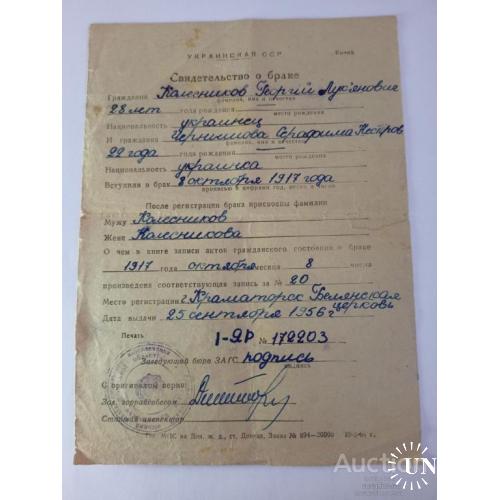 УКРАИНСКАЯ ССР
Копия
Свидетельство о браке
Гражданин Колесников Георгий Лукьянович
фамилия, имя и отчество
28 лет года рождения
место рождения
Национальность украинец
И гражданка Чернышова Серафима Нестров
фамилия, имя и отчество
22 года года рождения
место рождения
Национальность украинка
Вступили в брак 8 октября 1917 года
прописью и цифрами год, месяц и число
После регистрации брака присвоены фамилии
Мужу Колесников
Жене Колесникова
О чем в книге записи актов гражданского состояния о браке
1917 года октября месяца 8 числа
произведена соответствующая запись за № 20
Место регистрации г. Краматорск Белянская церковь
Дата выдачи 25 сентября 1956 г
Печать
I-ЯР № 172203
Заведующий бюро ЗАГС подпись
подпись
С оригиналом верно:
Зав. горрайбюро
Старший инспектор
Аукціон
UN